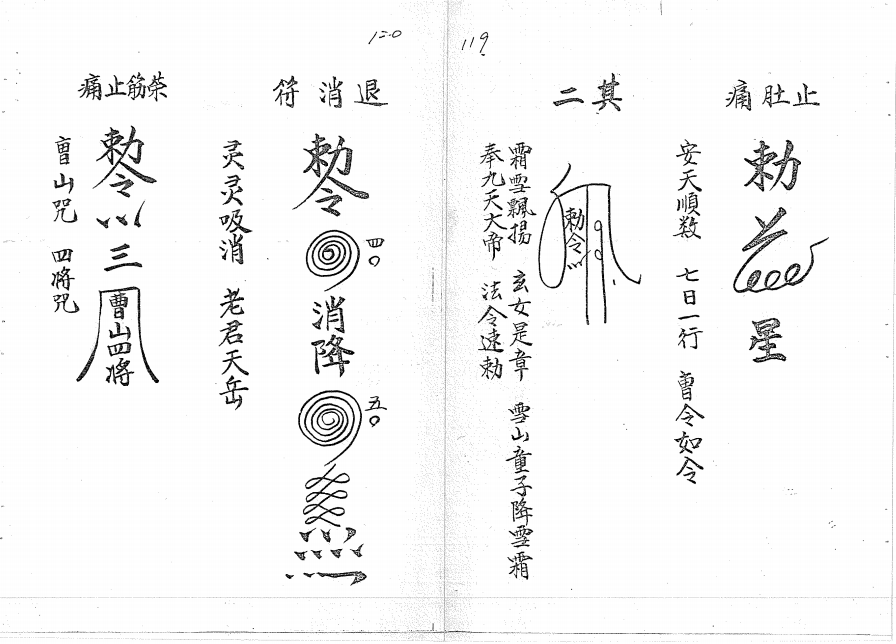 119
止肚痛
勅
星
安天順数 七日一行 曺令如令
其二
勅令
霜雪飄揚 玄女是章 雪山童子降雪霜
奉九天大帝 法令速勅
120
退消符
勅令
四〇
消降
五〇
灵灵吸消 老君天岳
荣筋止痛
勅令
三
曺山四将
曺山咒 四将咒